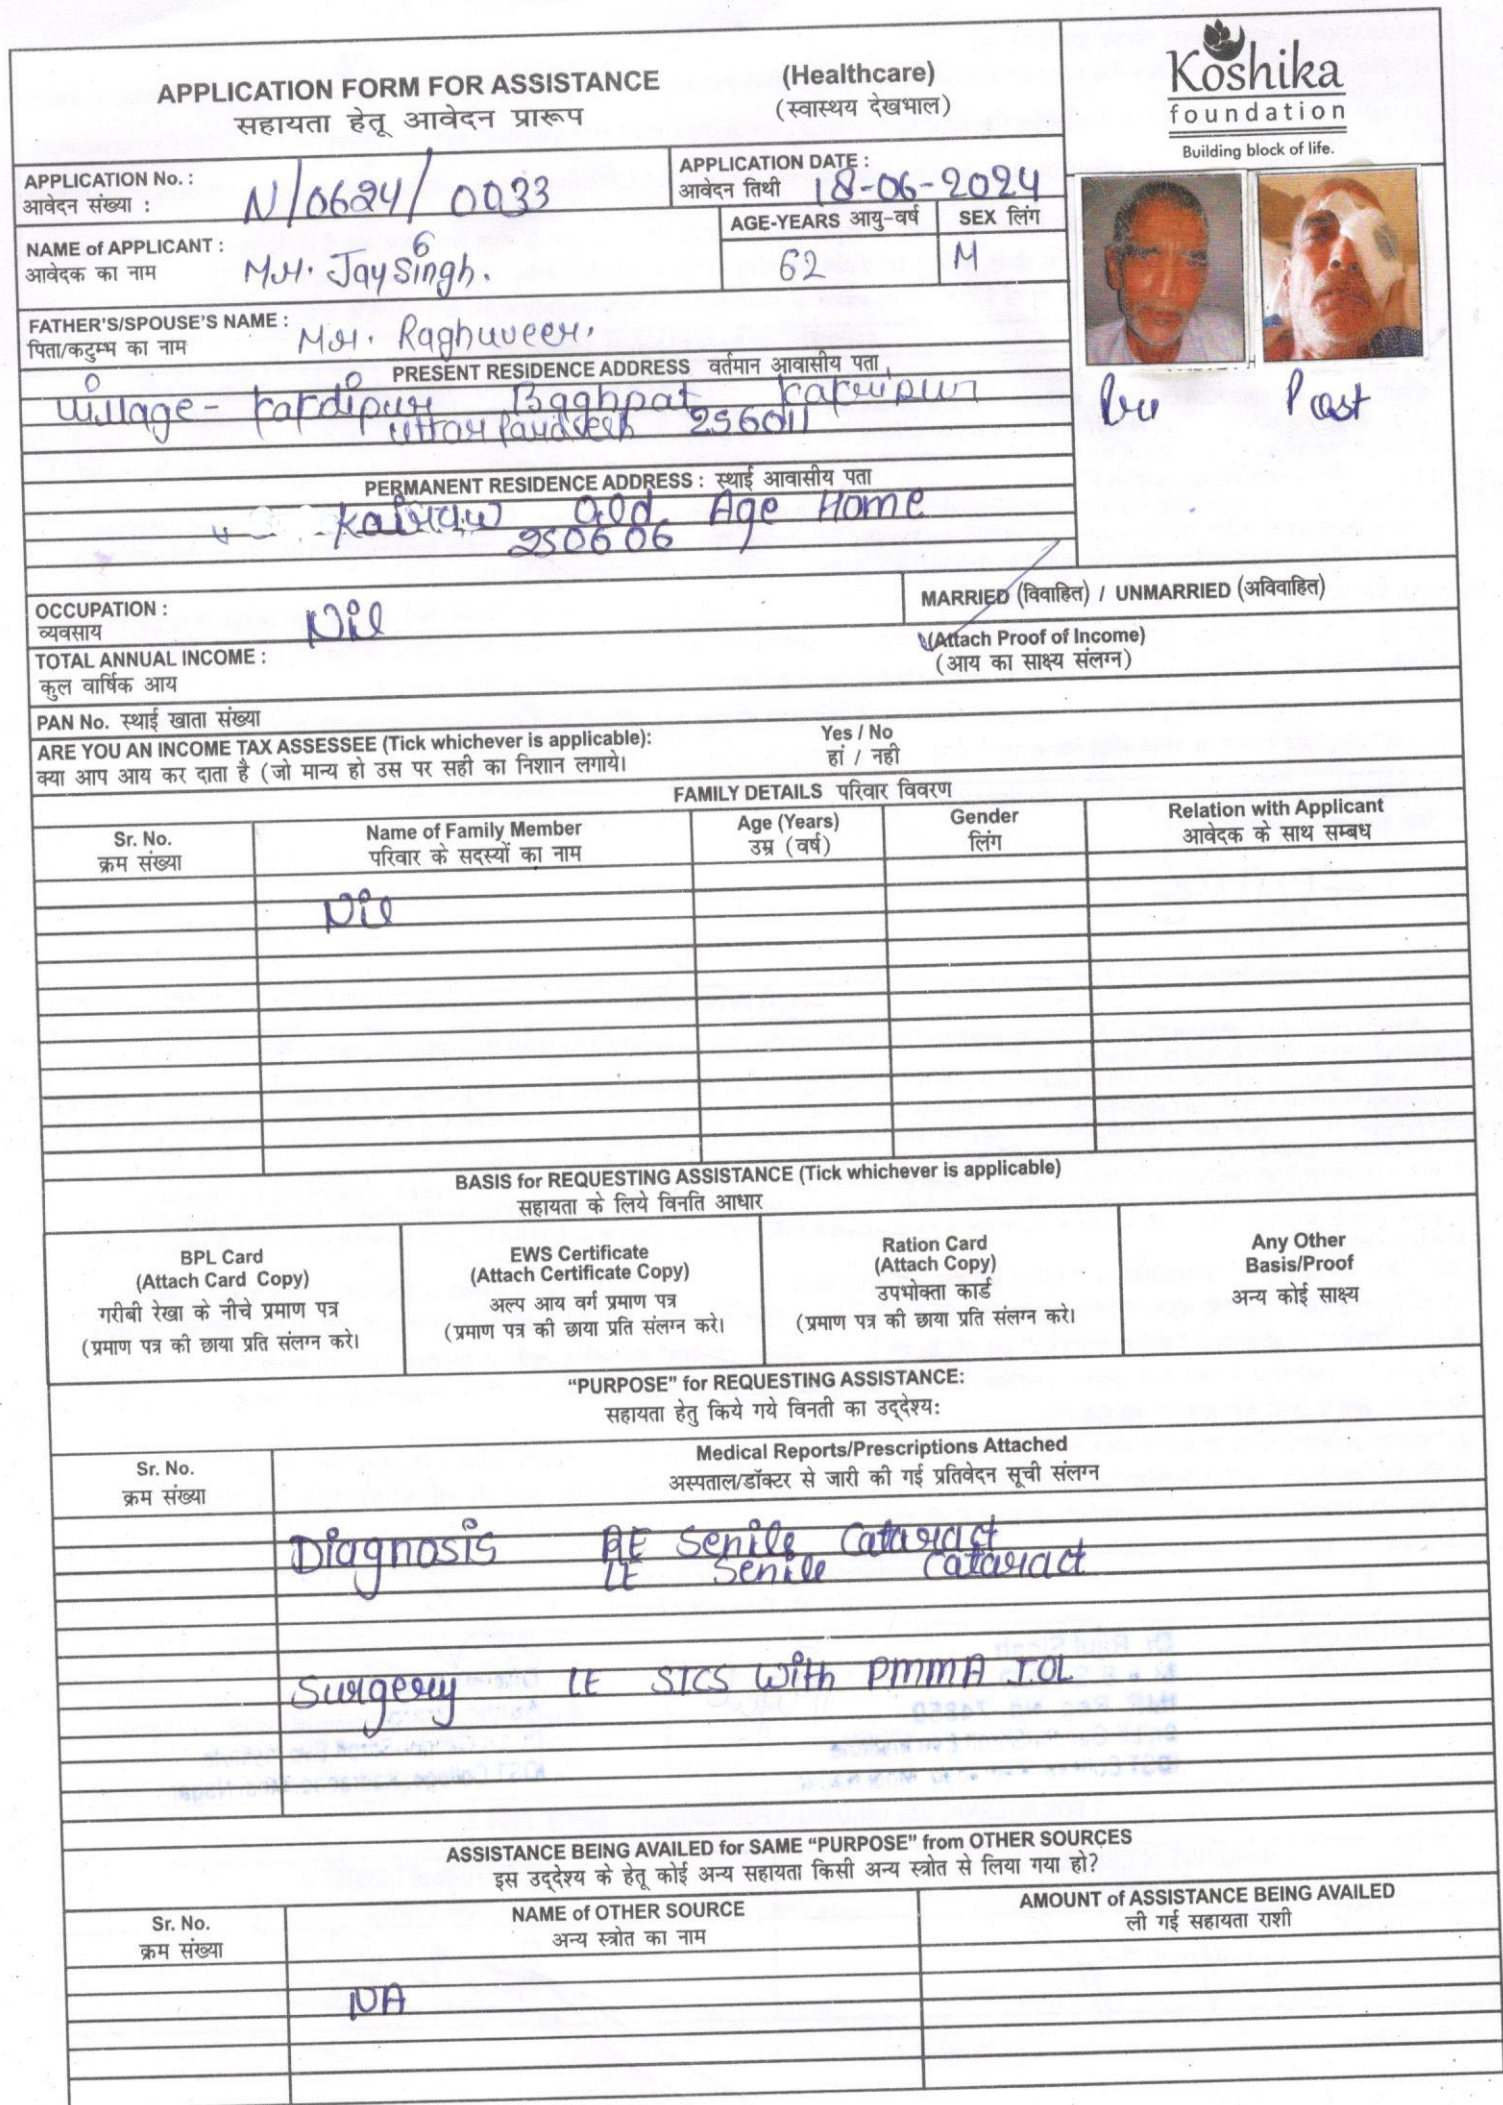 APPLICATION FORM FOR ASSISTANCE (Healthcare)
सहायता हेतू आवेदन प्रारूप (स्वास्थय देखभाल)
Koshika
foundation
Building block of life.
APPLICATION No. :
आवेदन संख्या : N/0624/0033
APPLICATION DATE :
आवेदन तिथी 18-06-2024
NAME of APPLICANT :
आवेदक का नाम Mr. Jay Singh.
AGE-YEARS आयु-वर्ष SEX लिंग
62 M
FATHER'S/SPOUSE'S NAME :
पिता/कटुम्भ का नाम Mr. Raghuveer.
PRESENT RESIDENCE ADDRESS वर्तमान आवासीय पता
village - Baghpat
Uttar Pardesh
Post
PERMANENT RESIDENCE ADDRESS : स्थाई आवासीय पता
Old Age Home
250606
OCCUPATION :
व्यवसाय Nil
MARRIED (विवाहित) / UNMARRIED (अविवाहित)
TOTAL ANNUAL INCOME :
कुल वार्षिक आय
(Attach Proof of Income)
(आय का साक्ष्य संलग्न)
PAN No. स्थाई खाता संख्या
ARE YOU AN INCOME TAX ASSESSEE (Tick whichever is applicable): Yes / No
क्या आप आय कर दाता है (जो मान्य हो उस पर सही का निशान लगाये। हां / नही
FAMILY DETAILS परिवार विवरण
Sr. No. Name of Family Member Age (Years) Gender Relation with Applicant
क्रम संख्या परिवार के सदस्यों का नाम उम्र (वर्ष) लिंग आवेदक के साथ सम्बध
Nil
BASIS for REQUESTING ASSISTANCE (Tick whichever is applicable)
सहायता के लिये विनति आधार
BPL Card
(Attach Card Copy)
गरीबी रेखा के नीचे प्रमाण पत्र
(प्रमाण पत्र की छाया प्रति संलग्न करे।
EWS Certificate
(Attach Certificate Copy)
अल्प आय वर्ग प्रमाण पत्र
(प्रमाण पत्र की छाया प्रति संलग्न करे।
Ration Card
(Attach Copy)
उपभोक्ता कार्ड
(प्रमाण पत्र की छाया प्रति संलग्न करे।
Any Other
Basis/Proof
अन्य कोई साक्ष्य
"PURPOSE" for REQUESTING ASSISTANCE:
सहायता हेतु किये गये विनती का उद्देश्य:
Sr. No. Medical Reports/Prescriptions Attached
क्रम संख्या अस्पताल/डॉक्टर से जारी की गई प्रतिवेदन सूची संलग्न
Diagnosis RE Senile Cataract
LE Senile Cataract
Surgery LE SICS With PMMA IOL
ASSISTANCE BEING AVAILED for SAME "PURPOSE" from OTHER SOURCES
इस उद्देश्य के हेतू कोई अन्य सहायता किसी अन्य स्त्रोत से लिया गया हो?
Sr. No. NAME of OTHER SOURCE AMOUNT of ASSISTANCE BEING AVAILED
क्रम संख्या अन्य स्त्रोत का नाम ली गई सहायता राशी
NA